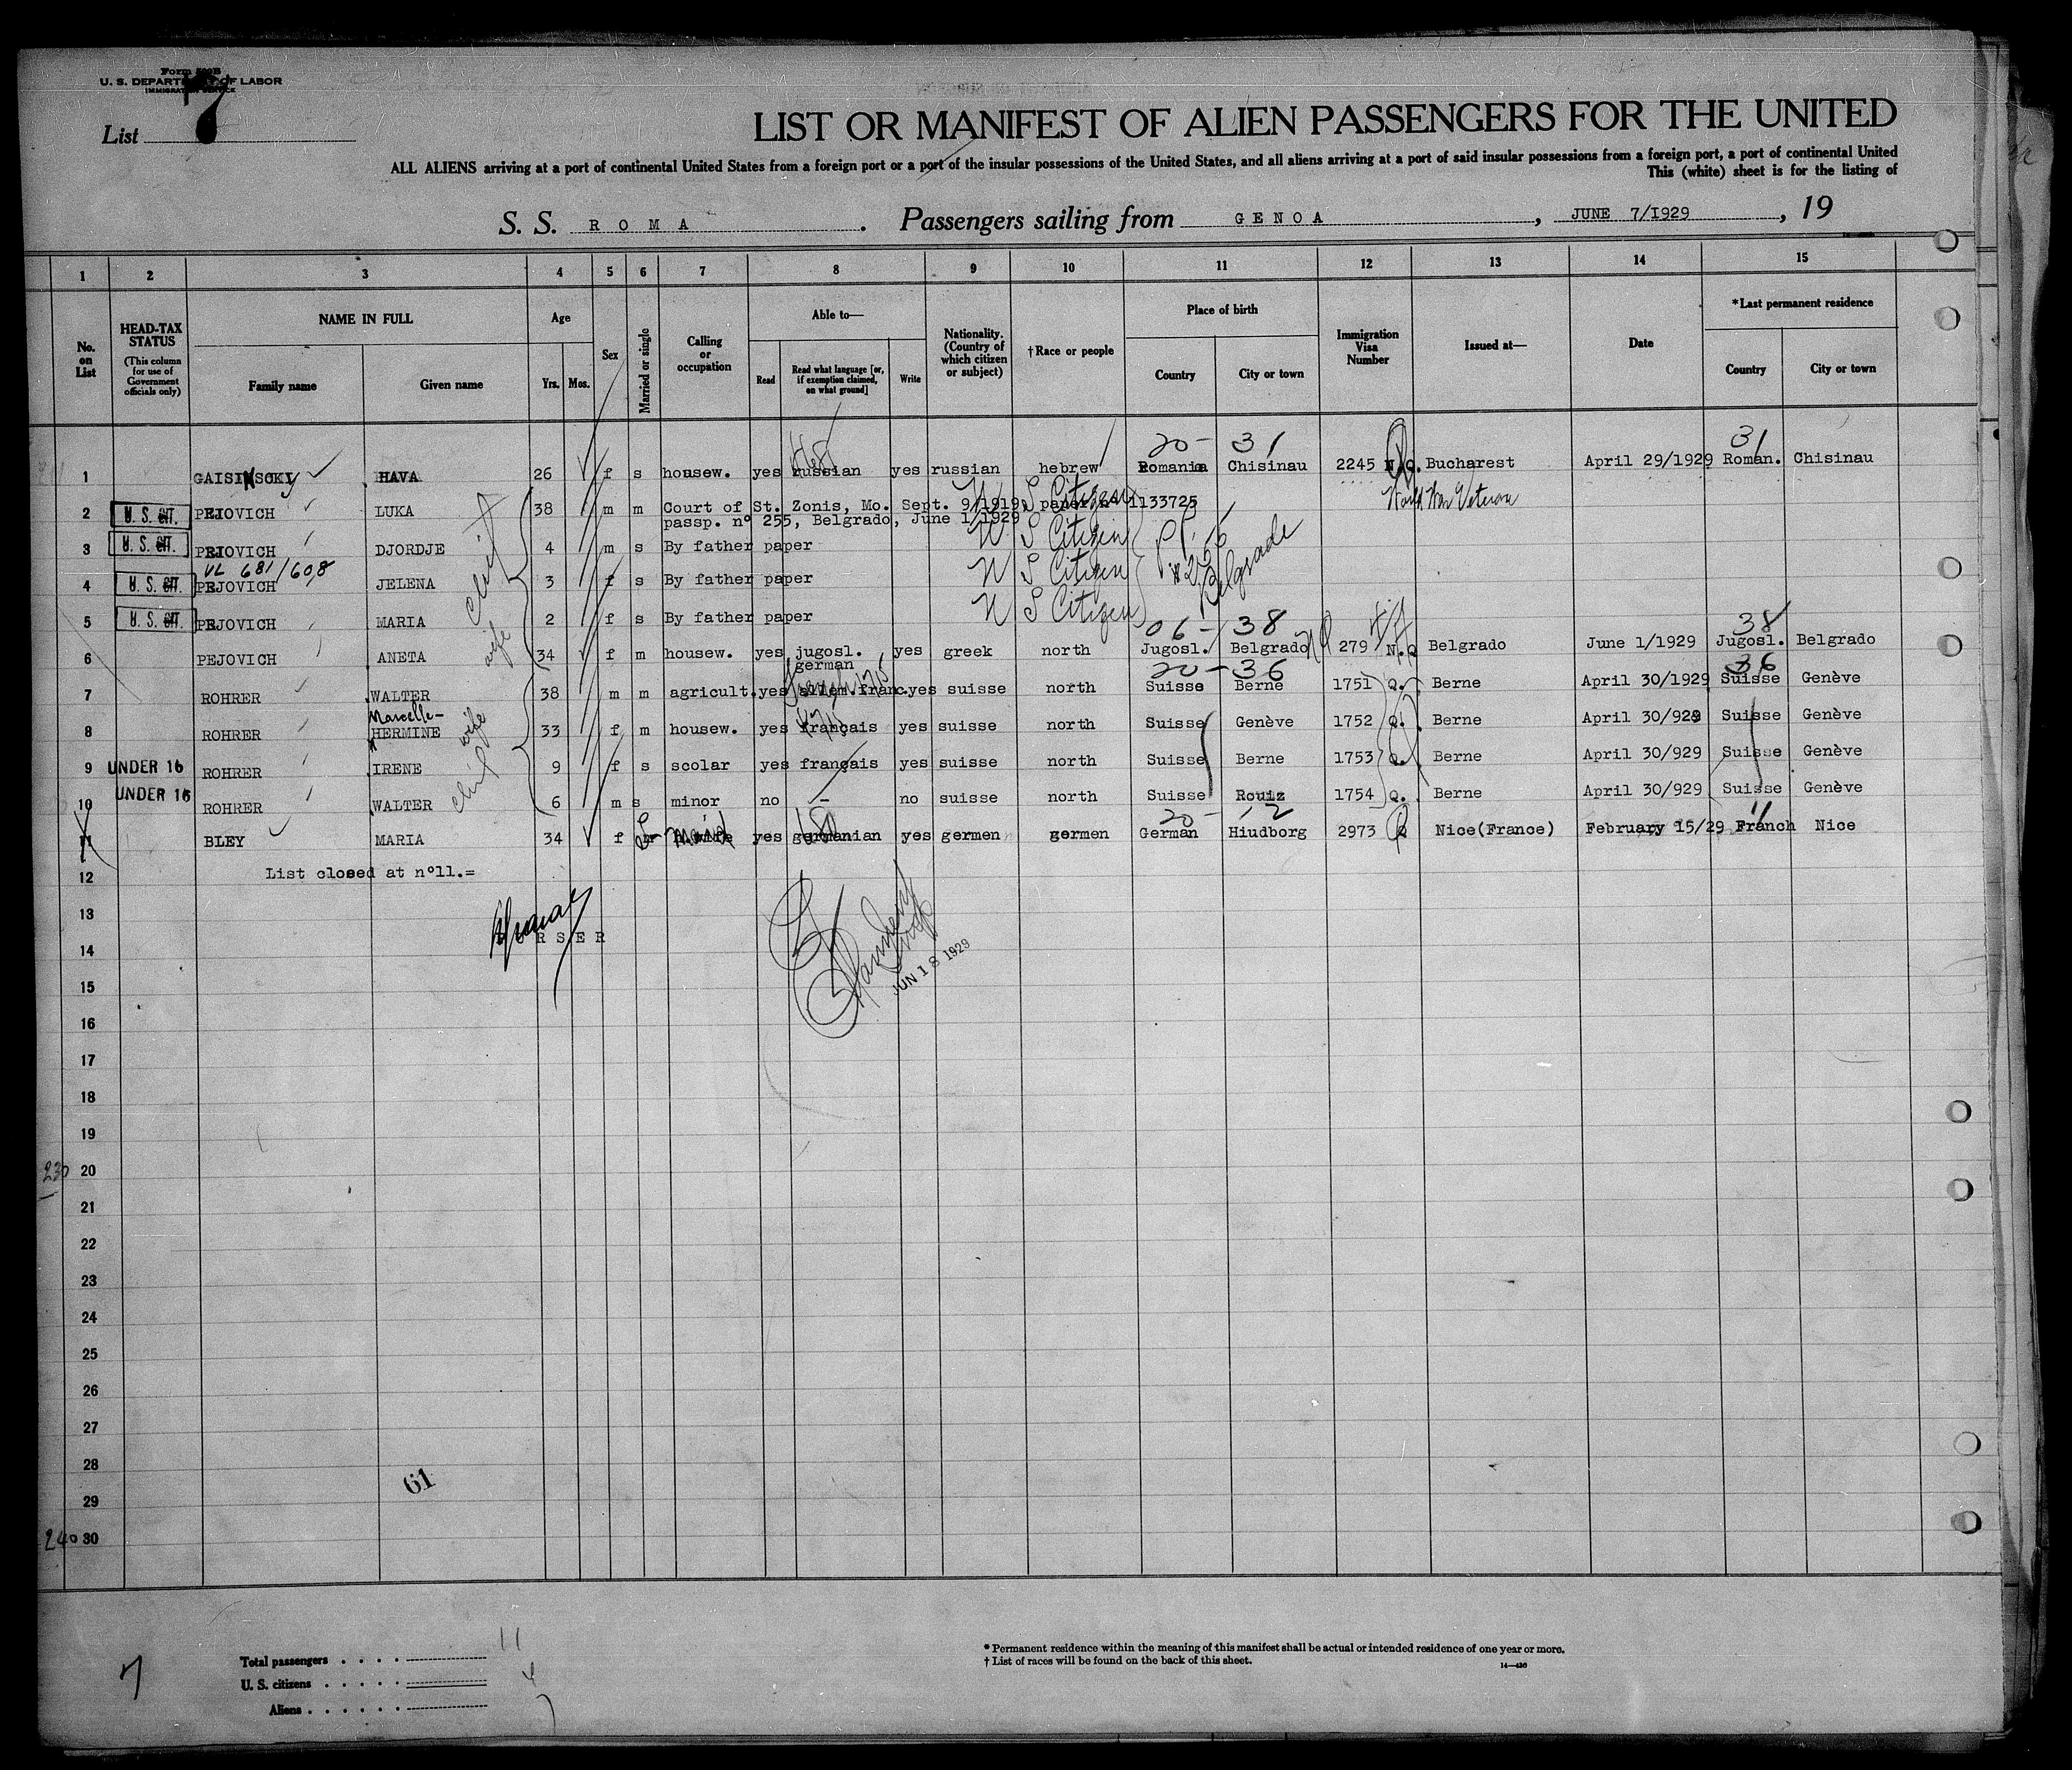 Form 500B
U. S. DEPARTMENT OF LABOR
IMMIGRATION SERVICE
List 7
LIST OR MANIFEST OF ALIEN PASSENGERS FOR THE UNITED
ALL ALIENS arriving at a port of continental United States from a foreign port or a port of the insular possessions of the United States, and all aliens arriving at a port of said insular possessions from a foreign port, a port of continental United
This (white) sheet is for the listing of
S. S. ROMA. Passengers sailing from GENOA, JUNE 7/1929, 19
1 2 3 4 5 6 7 8 9 10 11 12 13 14 15
No. on List
HEAD-TAX STATUS (This column for use of Government officials only)
NAME IN FULL
Family name Given name
Age
Yrs. Mos.
Sex
Married or single
Calling or occupation
Able to—
Read Read what language [or, if exemption claimed, on what ground] Write
Nationality. (Country of which citizen or subject)
†Race or people
Place of birth
Country City or town
Immigration Visa Number
Issued at—
Date
*Last permanent residence
Country City or town
20- 31 31
1 GAISINSKY HAVA 26 f s housew. yes russian yes russian hebrew Romania Chisinau 2245 Bucharest April 29/1929 Roman. Chisinau
World War Veteran
2 U. S. CIT. PEJOVICH LUKA 38 m m Court of St. Zonis, Mo. Sept. 9/1919, paper n° 1133725 U S Citizen
passp. n° 255, Belgrado, June 1/1929
3 U. S. CIT. PEJOVICH DJORDJE 4 m s By father paper U S Citizen
VL 681/608
4 U. S. CIT. PEJOVICH JELENA 3 f s By father paper U S Citizen
5 U. S. CIT. PEJOVICH MARIA 2 f s By father paper U S Citizen
Belgrade
06- 38 38
6 PEJOVICH ANETA wife 34 f m housew. yes jugosl. yes greek north Jugosl. Belgrado 279 N.Q Belgrado June 1/1929 Jugosl. Belgrado
german 20-36 36
7 ROHRER WALTER 38 m m agricult. yes allem.franc. yes suisse north Suisse Berne 1751 Q. Berne April 30/1929 Suisse Genève
Marcelle-
8 ROHRER HERMINE wife 33 f m housew. yes français yes suisse north Suisse Genève 1752 Q. Berne April 30/929 Suisse Genève
9 UNDER 16 ROHRER IRENE 9 f s scolar yes français yes suisse north Suisse Berne 1753 Q. Berne April 30/929 Suisse Genève
10 UNDER 16 ROHRER WALTER 6 m s minor no - no suisse north Suisse Rouiz 1754 Q. Berne April 30/929 Suisse Genève
20- 12 11
11 BLEY MARIA 34 f maid yes germanian yes germen germen German Hiudborg 2973 Q Nice(France) February 15/29 Franch Nice
12 List closed at n°11.=
13
RSER
14
JUN 18 1929
15
16
17
18
19
230 20
21
22
23
24
25
26
27
28
61
29
240 30
Total passengers . . . . 11
U. S. citizens . . . . . 4
Aliens . . . . . . 7
7
* Permanent residence within the meaning of this manifest shall be actual or intended residence of one year or more.
† List of races will be found on the back of this sheet.
14—426